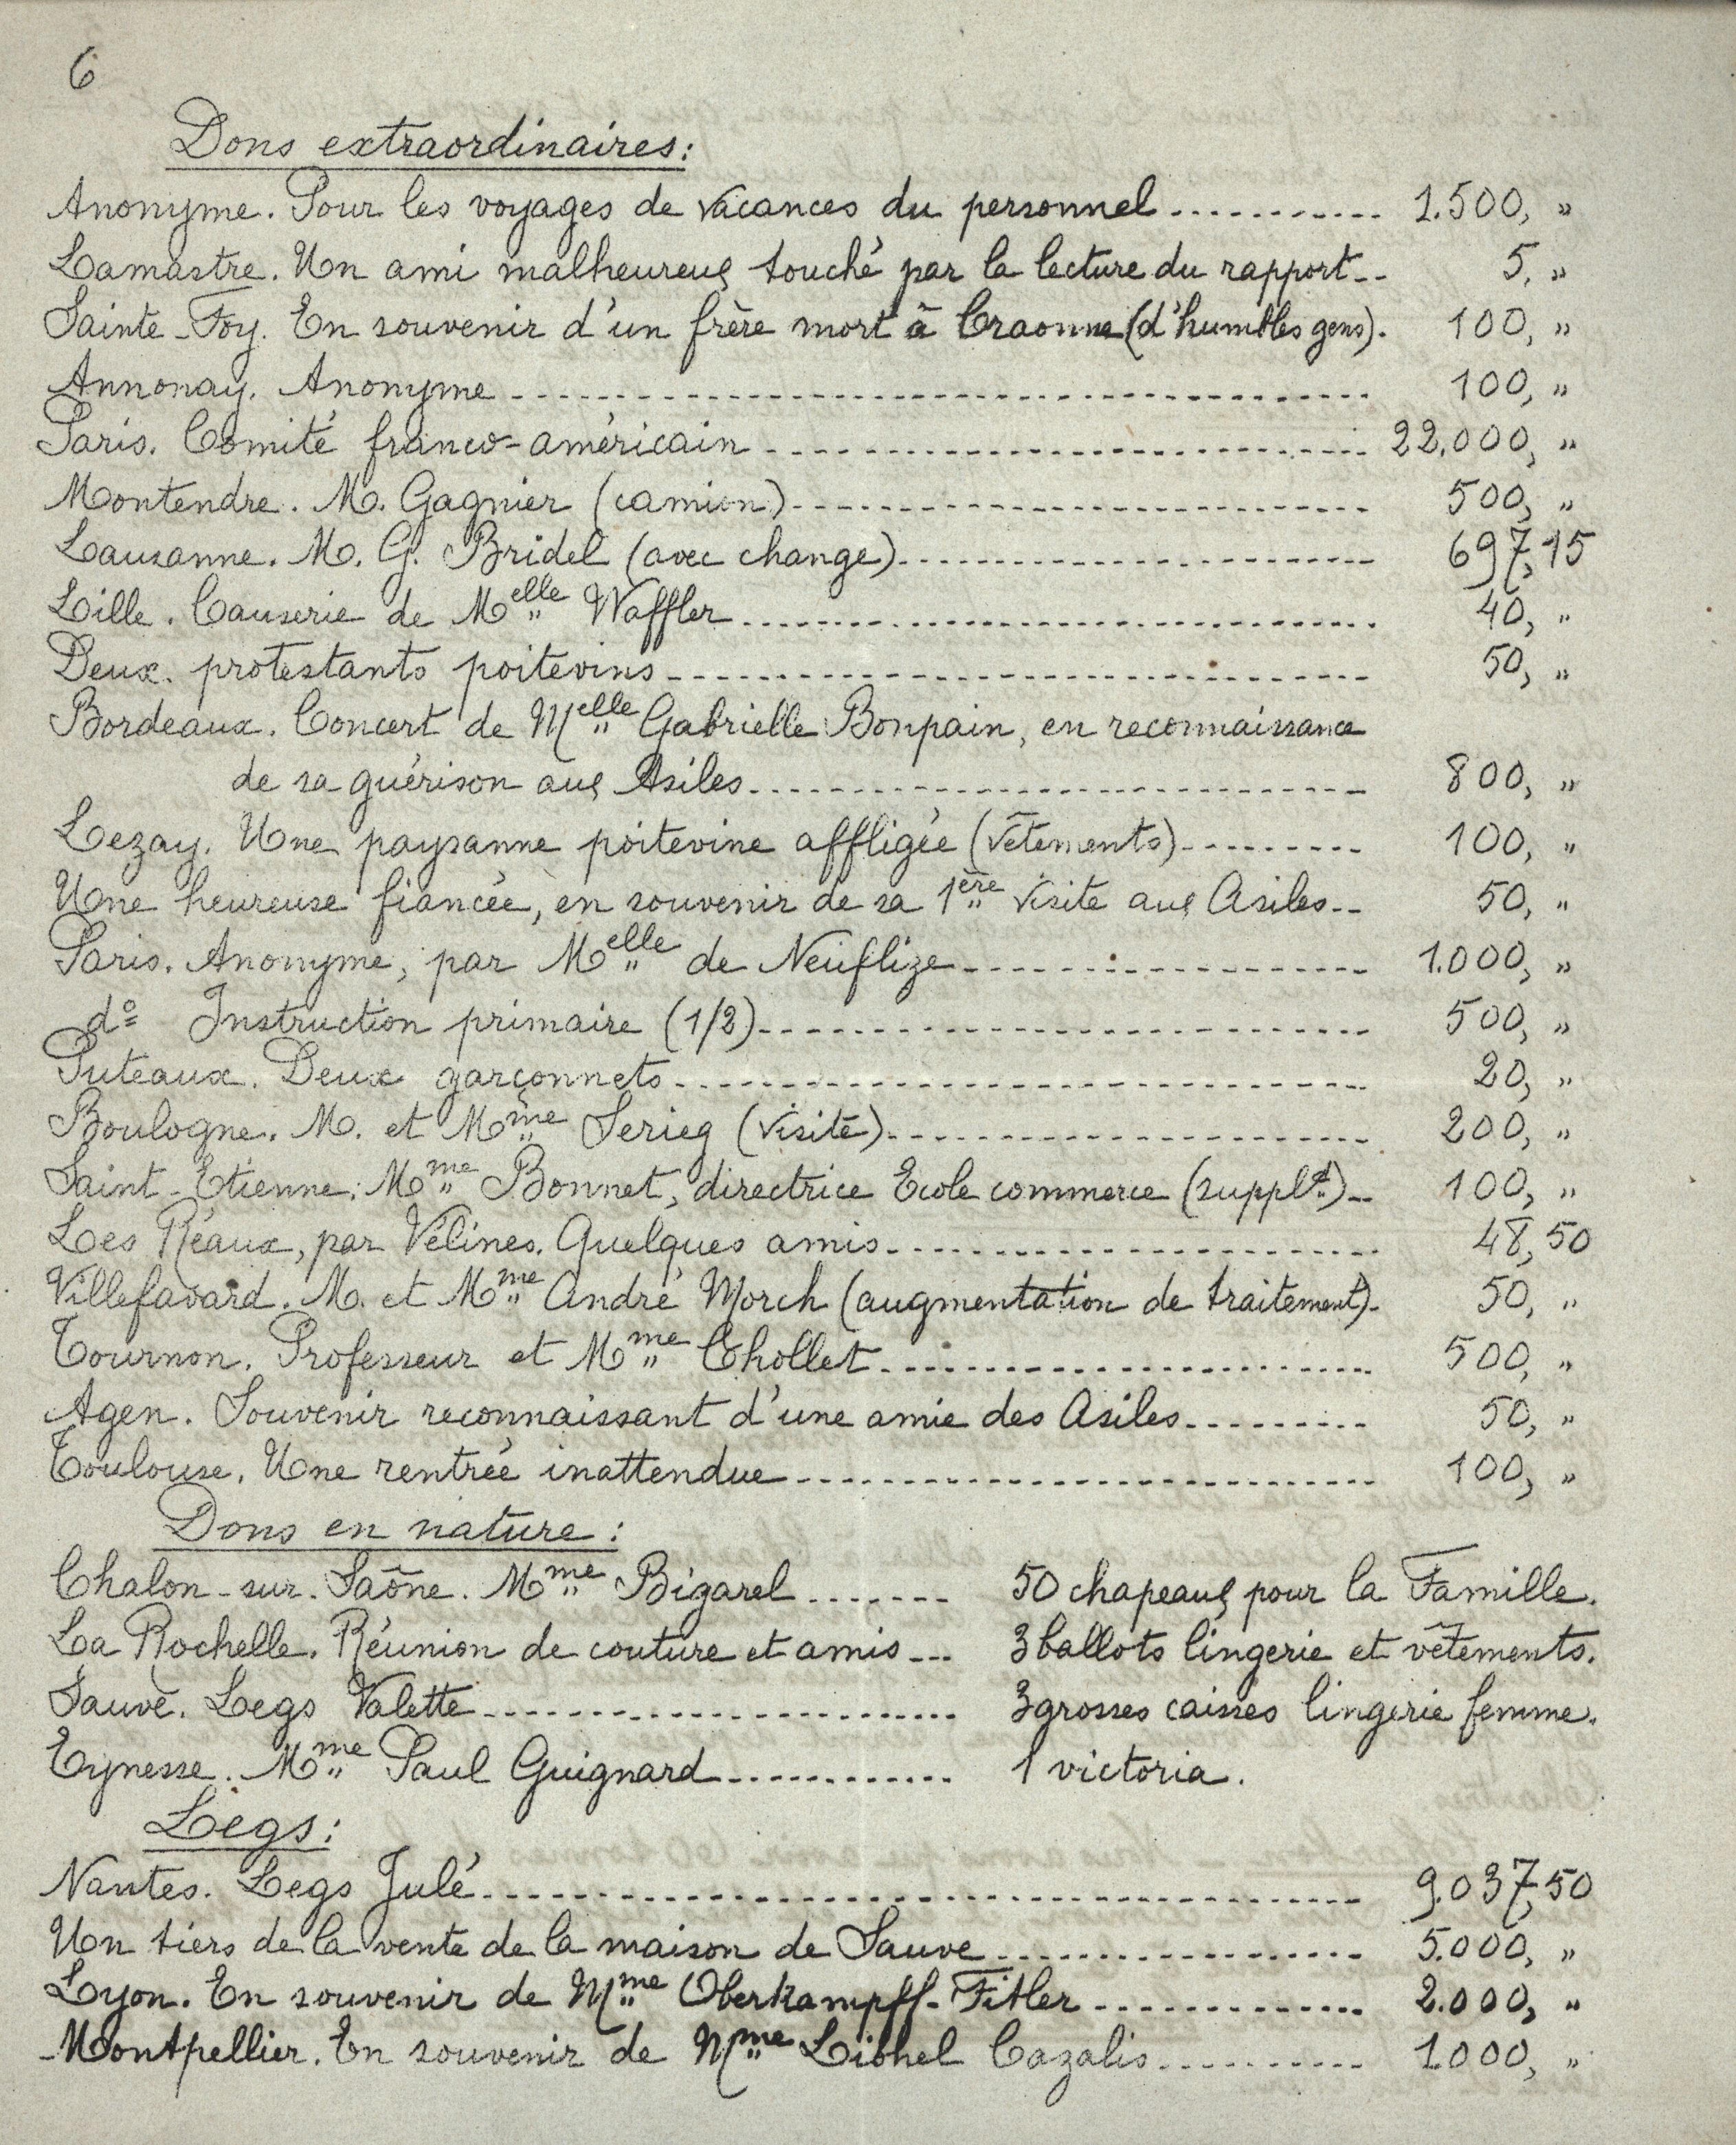 6
Dons extraordinaires:
Anonyme. Pour les voyages de vacances du personnel ........... 1.500, "
Lamastre. Un ami malheureux touché par la lecture du rapport.. 5, "
Sainte-Foy. En souvenir d'un frère mort à Craonne (d'humbles gens). 100, "
Annonay. Anonyme ........... 100, "
Paris. Comité franco-américain ........... 22.000, "
Montendre. M. Gagnier (camion) ........... 500, "
Lausanne. M. G. Bridel (avec change) ........... 697,15
Lille. Causerie de Melle Waffler ........... 40, "
Deux protestants poitevins ........... 50, "
Bordeaux. Concert de Melle Gabrielle Bonpain, en reconnaissance
de sa guérison aux Asiles ........... 800, "
Lezay. Une paysanne poitevine affligée (vêtements) ......... 100, "
Une heureuse fiancée, en souvenir de sa 1ère visite aux Asiles.. 50, "
Paris. Anonyme, par Melle de Neuflize ........... 1.000, "
do Instruction primaire (1/2) ........... 500, "
Puteaux. Deux garçonnets ........... 20, "
Boulogne. M. et Mme Serieg (visite) ........... 200, "
Saint-Etienne. Mme Bonnet, directrice Ecole commerce (supplt).. 100, "
Les Réaux, par Vélines. Quelques amis ........... 48,50
Villefavard. M. et Mme André Morch (augmentation de traitement). 50, "
Tournon. Professeur et Mme Chollet ........... 500, "
Agen. Souvenir reconnaissant d'une amie des Asiles ......... 50, "
Toulouse. Une rentrée inattendue ........... 100, "
Dons en nature:
Chalon-sur-Saône. Mme Bigarel ....... 50 chapeaux pour la Famille.
La Rochelle. Réunion de couture et amis ... 3 ballots lingerie et vêtements.
Sauve. Legs Valette ........... 3 grosses caisses lingerie femme.
Eynesse. Mme Paul Guignard ........... 1 victoria.
Legs:
Nantes. Legs Julé ........... 9.037,50
Un tiers de la vente de la maison de Sauve ........... 5.000, "
Lyon. En souvenir de Mme Oberkampff-Fitler ........... 2.000, "
Montpellier. En souvenir de Mme Lionel Cazalis .......... 1.000, "